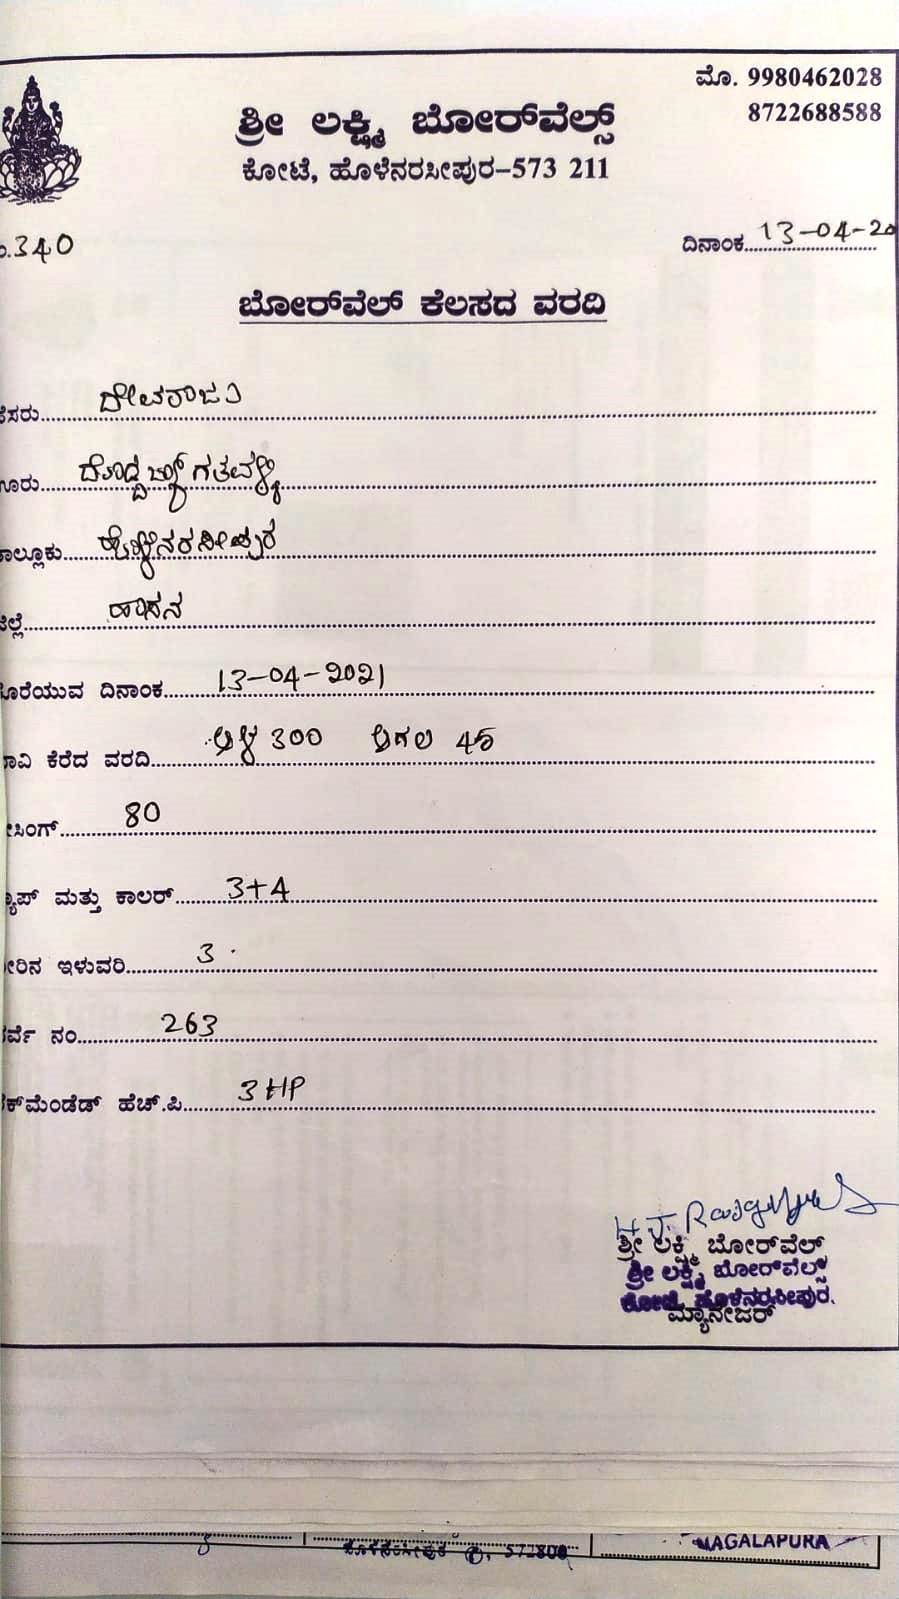 ಮೊ. 9980462028
8722688588
ಶ್ರೀ ಲಕ್ಷ್ಮಿ ಬೋರ್‌ವೆಲ್ಸ್
ಕೋಟೆ, ಹೊಳೆನರಸೀಪುರ-573 211
340
ದಿನಾಂಕ 13-04-20
ಬೋರ್‌ವೆಲ್ ಕೆಲಸದ ವರದಿ
ಸರು ದೇವರಾಜು
ರು
ಲ್ಲೂಕು ಹೊಳೆನರಸೀಪುರ
ಲ್ಲೆ ಹಾಸನ
ರೆಯುವ ದಿನಾಂಕ 13-04-2021
ವಿ ಕೆರೆದ ವರದಿ ಆಳ 300 ಅಗಲ 45
ಸಿಂಗ್ 80
ಪ್ ಮತ್ತು ಕಾಲರ್ 3+4
ರಿನ ಇಳುವರಿ 3
ರ್ವೆ ನಂ 263
ಕ್‌ಮೆಂಡೆಡ್ ಹೆಚ್.ಪಿ 3 HP
ಶ್ರೀ ಲಕ್ಷ್ಮಿ ಬೋರ್‌ವೆಲ್ಸ್
ಶ್ರೀ ಲಕ್ಷ್ಮಿ ಬೋರ್‌ವೆಲ್ಸ್
ಕೋಟೆ, ಹೊಳೆನರಸೀಪುರ.
ಮ್ಯಾನೇಜರ್
MAGALAPURA